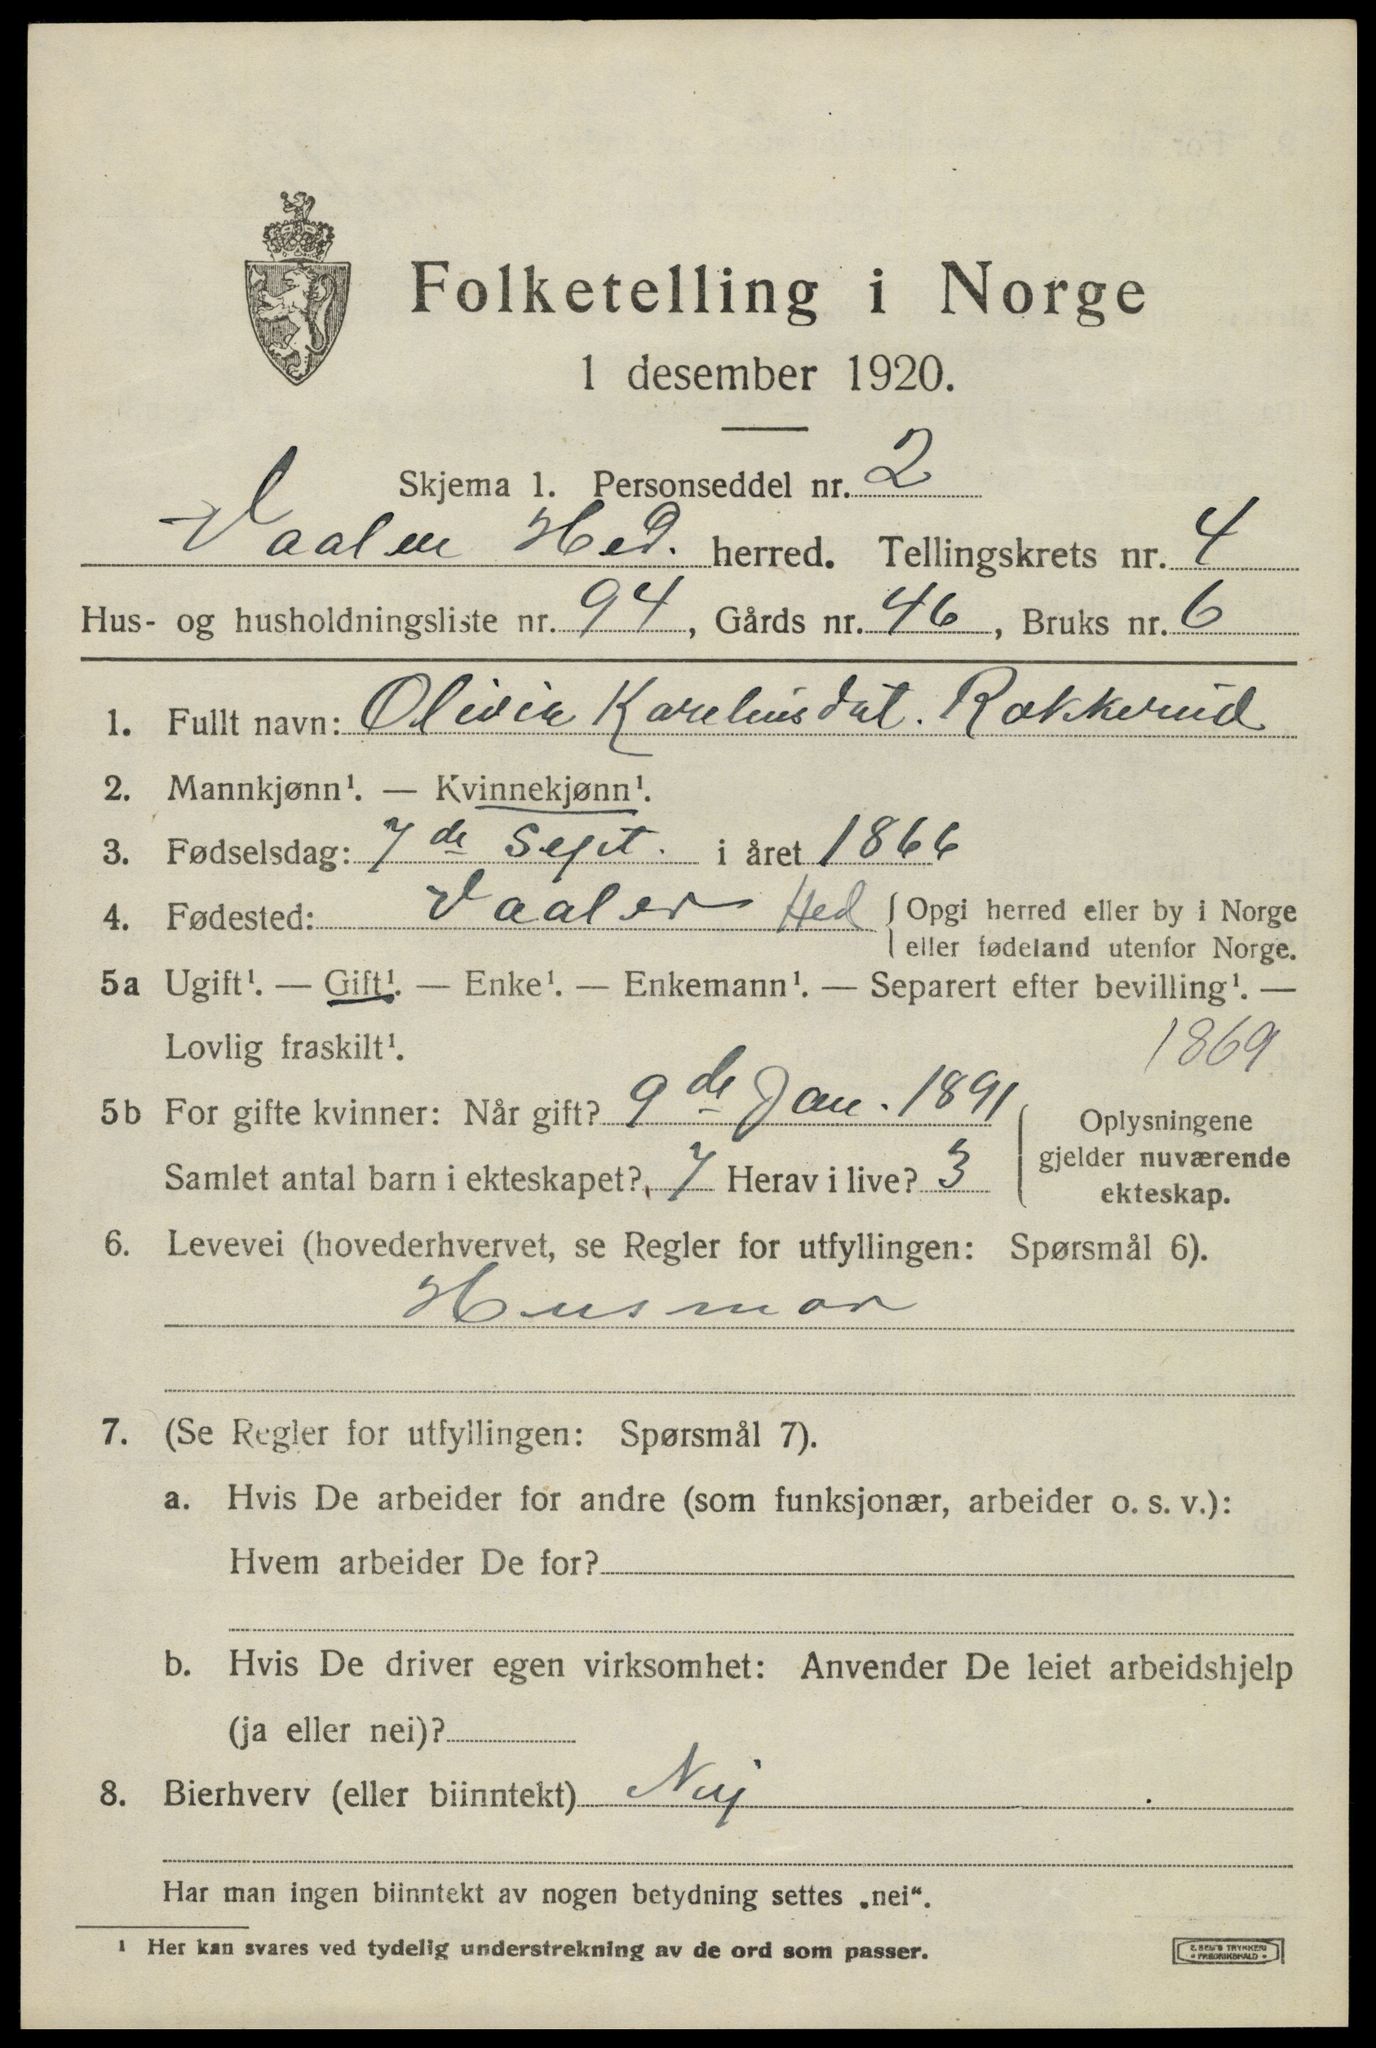 Folketelling i Norge
1 desember 1920.
Skjema 1. Personseddel nr. 2
Vaaler Hed. herred. Tellingskrets nr. 4
Hus- og husholdningsliste nr. 94, Gårds nr. 46, Bruks nr. 6
1. Fullt navn: Olivia Karelinsdat. Rokkerud
2. Mannkjønn¹. — Kvinnekjønn¹.
3. Fødselsdag: 7de Sept. i året 1866
4. Fødested: Vaaler Hed { Opgi herred eller by i Norge
eller fødeland utenfor Norge.
5a Ugift¹. — Gift¹. — Enke¹. — Enkemann¹. — Separert efter bevilling¹. —
Lovlig fraskilt¹.
1869
5b For gifte kvinner: Når gift? 9de Jan. 1891
Samlet antal barn i ekteskapet? 7 Herav i live? 3
Oplysningene
gjelder nuværende
ekteskap.
6. Levevei (hovederhvervet, se Regler for utfyllingen: Spørsmål 6).
Husmor
7. (Se Regler for utfyllingen: Spørsmål 7).
a. Hvis De arbeider for andre (som funksjonær, arbeider o. s. v.):
Hvem arbeider De for?
b. Hvis De driver egen virksomhet: Anvender De leiet arbeidshjelp
(ja eller nei)?
8. Bierhverv (eller biinntekt) Nej
Har man ingen biinntekt av nogen betydning settes „nei“.
¹ Her kan svares ved tydelig understrekning av de ord som passer.
E. SEM'S TRYKKERI
• FREDRIKSHALD •